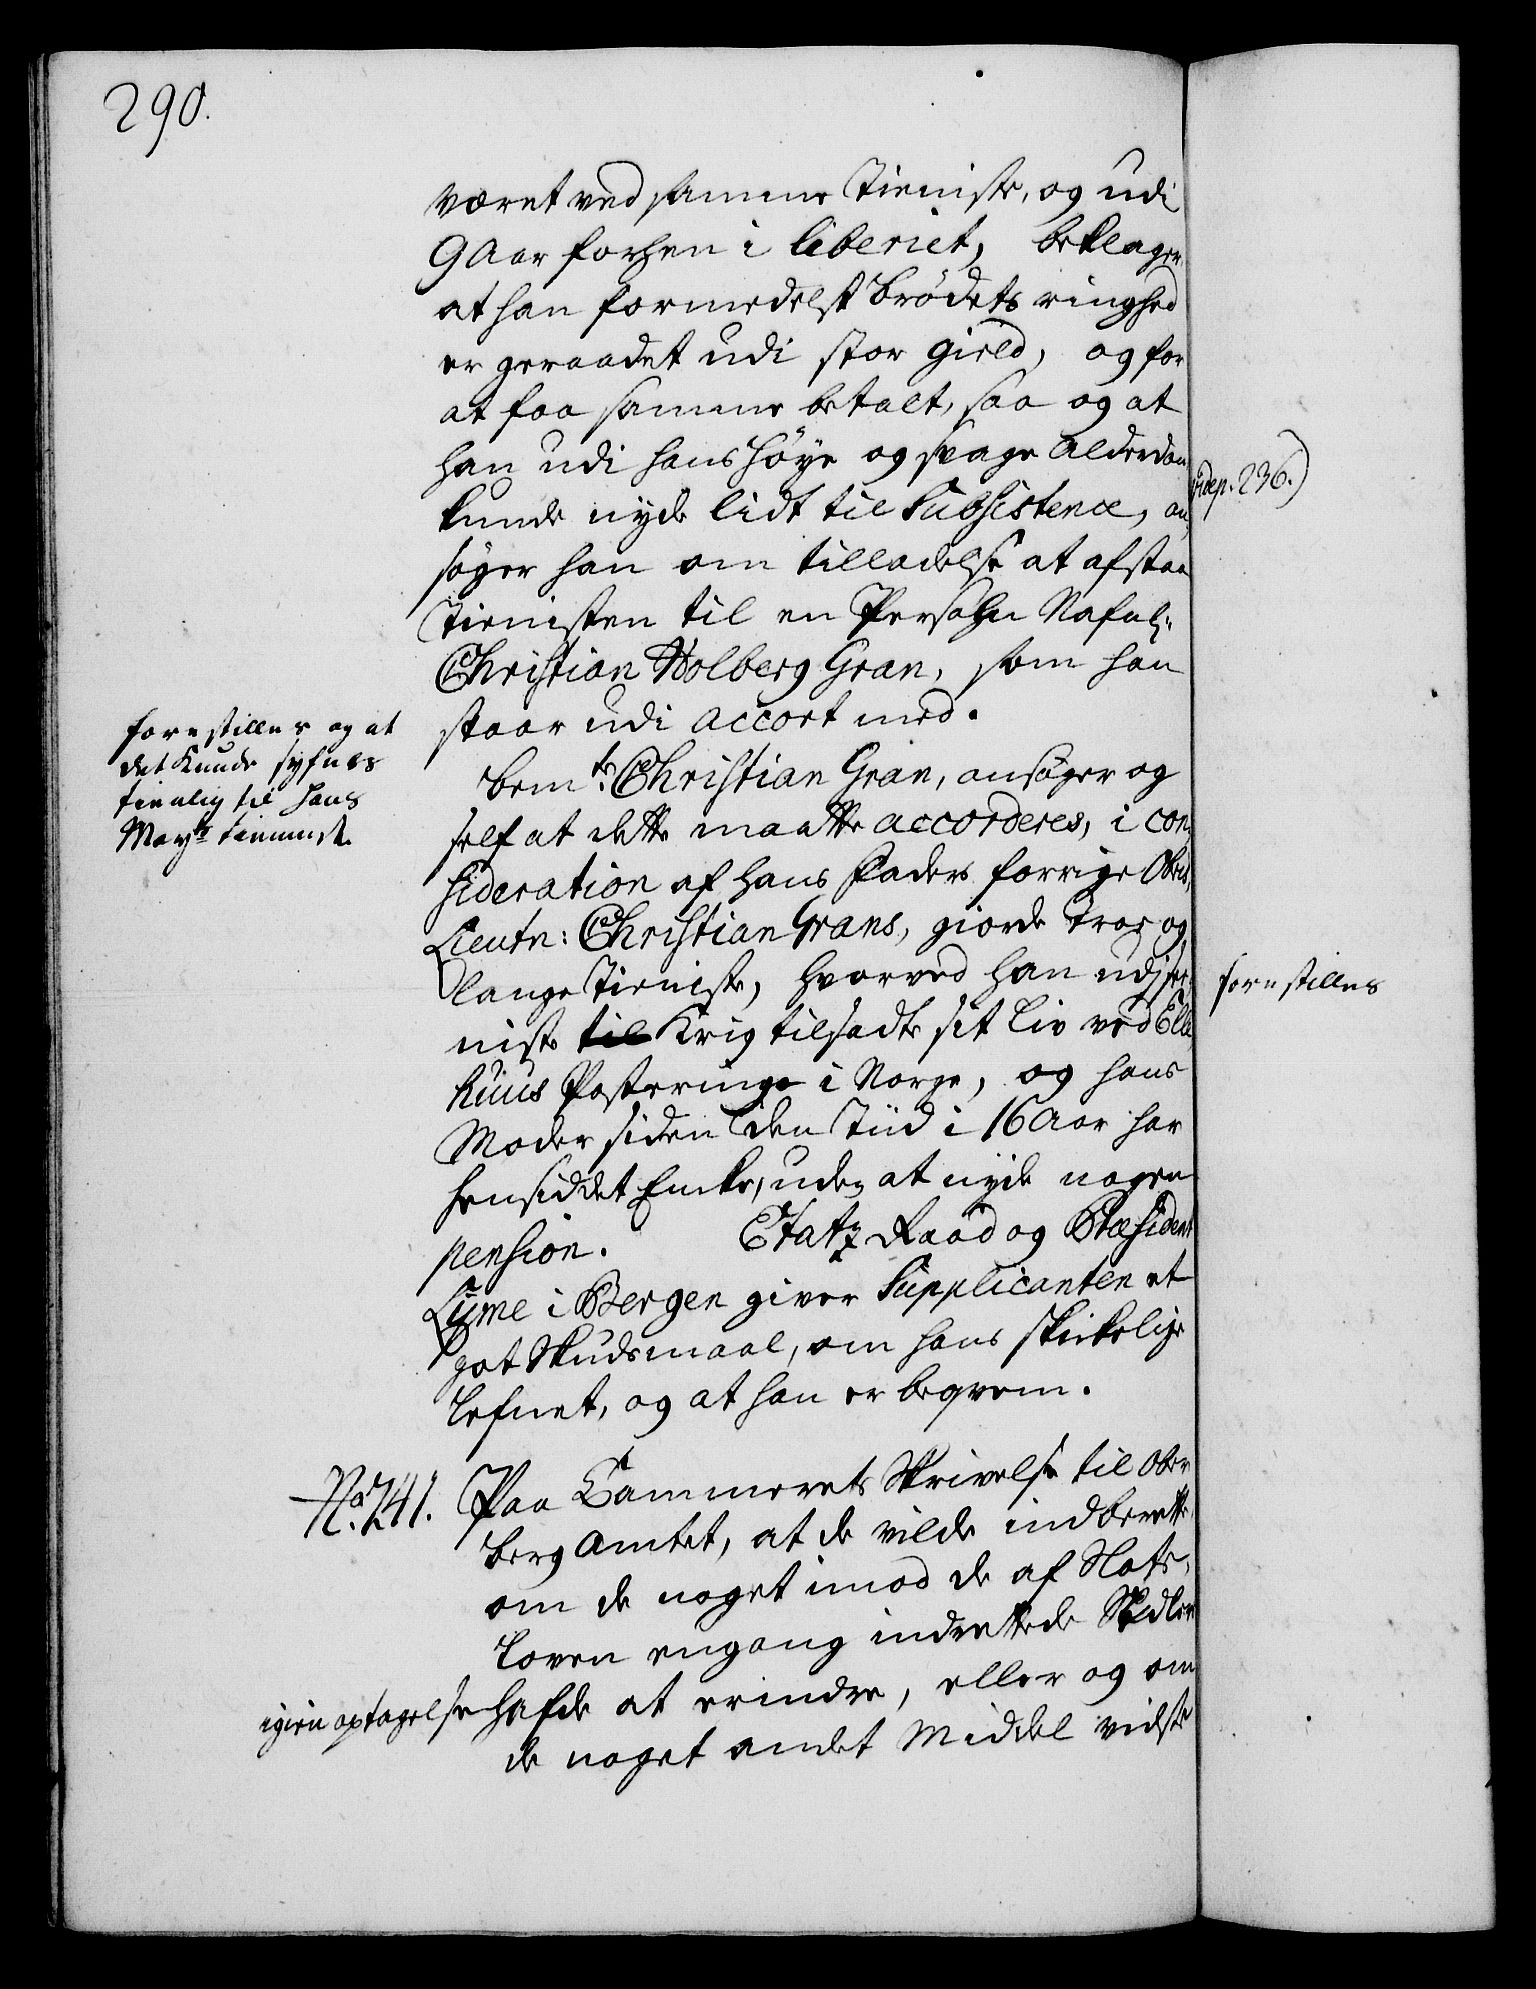 290.
været ved samme Tieniste, og udi
9 Aar forhen i liberiet, beklager
at han formedelst brødets ringhed
er geraadet udi stor gield, og for
at faa samme betalt, saa og at
han udi hans høye og svage Alderdom
kunde nyde lidt til Subsistence, an,
søger han om tilladelse at afstaa
Tienisten til en Persohn Nafnl:
Christian Holberg Gran, som han
staar udi accort med.
forestilles og at
det kunde syfnes
tienlig til hans
Mayts tienneste.
bemte Christian Gran, ansøger og
self at dette maatte accorderes, i con,
sideration af hans Faders forrige Obrist,
Lieutn: Christian Grans, giorde troe og
lange Tieniste, hvorved han udj
niste Krig tilsadte sit liv ved
huus Postering i Norge, og hans
Moder siden den Tiid i 16 Aar har
hensiddet Enke, uden at nyde nogen
pension. Etatz Raad og Præsident
Lÿme i Bergen giver Supplicanten et
got Skudsmaal, om hans skikelige
lefnet, og at han er beqvem.
No. 241. Paa Cammerets Skrivelse til Ober
berg Amtet, at de vilde indberette,
om de noget imod de af Slots,
loven engang indrettede Sedler
igien optagelse hafde at erindre, eller og om
de noget andet Middel vidste
vide p. 236.)
forestilles